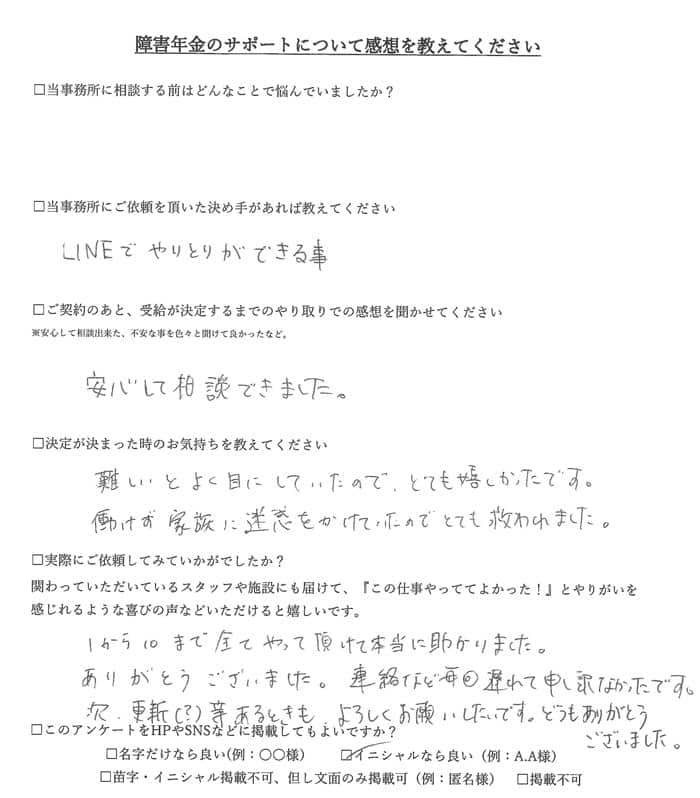 障害年金のサポートについて感想を教えてください
□当事務所に相談する前はどんなことで悩んでいましたか？
□当事務所にご依頼を頂いた決め手があれば教えてください
LINEでやりとりができる事
□ご契約のあと、受給が決定するまでのやり取りでの感想を聞かせてください
※安心して相談出来た、不安な事を色々と聞けて良かったなど。
安心して相談できました。
□決定が決まった時のお気持ちを教えてください
難しいとよく目にしていたので、とても嬉しかったです。
働けず家族に迷惑をかけていたのでとても救われました。
□実際にご依頼してみていかがでしたか？
関わっていただいているスタッフや施設にも届けて、『この仕事やっててよかった！』とやりがいを
感じれるような喜びの声などいただけると嬉しいです。
1から10まで全てやって頂けて本当に助かりました。
ありがとうございました。連絡など毎回遅れて申し訳なかったです。
次、更新(?)等あるときも、よろしくお願いしたいです。どうもありがとう
ございました。
□このアンケートをHPやSNSなどに掲載してもよいですか？
□名字だけなら良い(例：〇〇様) ☑イニシャルなら良い（例：A.A様）
□苗字・イニシャル掲載不可、但し文面のみ掲載可（例：匿名様） □掲載不可